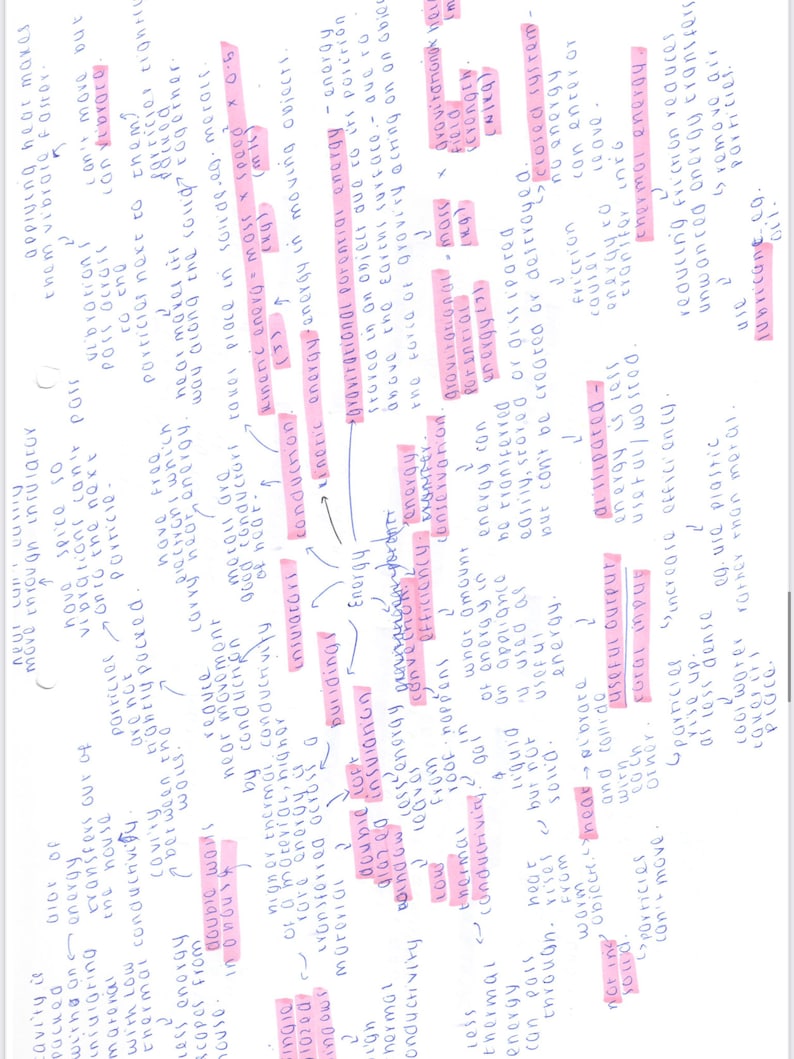 cavity is
packed
with an
insulating
material
with low
thermal conductivity.
alot of
energy
transfers out of
the house
cavity
between the
walls.
less energy
escapes from
house.
double walls
in a house
particles
are not
tightly packed.
have space so
vibrations can't pass
onto the next
particle.
move through insulator
applying heat makes
them vibrate faster.
can't move but
can vibrate.
vibrations
pass across
to the
particles next to them
particles tightly
packed
together.
heat makes its
way along the solid
takes place in solids. eg. metals.
have free
electrons which
carry heat energy.
metals are
good conductors
of heat.
conduction
reduce
heat movement
by conduction
insulators
kinetic energy = mass x speed² x 0.5
(J)
(kg)
(m/s)
kinetic energy - energy in moving objects.
gravitational potential energy - energy
stored in an object due to its position
above the Earth's surface - due to
the force of gravity acting on an object
gravitational
potential
energy (J)
= mass
(kg)
x gravitational
field
strength
N/kg)
Energy
buildings
higher thermal conductivity
of a material, higher
rate energy is
transferred across a
material
windows
thermal
conductivity
double
glazed
window
low
thermal
conductivity.
less
thermal
energy
can pass
through.
loft
insulation
less energy
leaves
from
roof
convection.
happens
in
gas
&
liquid
but not
solid.
heat
rises
from
warm
object.
heat → vibrate
and collide
with
each
other.
particles
rise up.
as less dense
cool water
takes its
place.
not in
solid.
particles
can't move.
efficiency.
what amount
of energy in
an appliance
is used as
useful
energy.
useful output
total input
increase efficiency.
eg. use plastic
rather than metal.
energy
transfer
conservation.
energy can
be transferred
easily, stored or dissipated
but can't be created or destroyed.
dissipated -
energy is less
useful/wasted.
closed system -
no energy
can enter or
leave.
friction
causes
energy to
transfer into
thermal energy.
reducing friction reduces
unwanted energy transfers
remove air
particles.
use
lubricant eg.
oil.